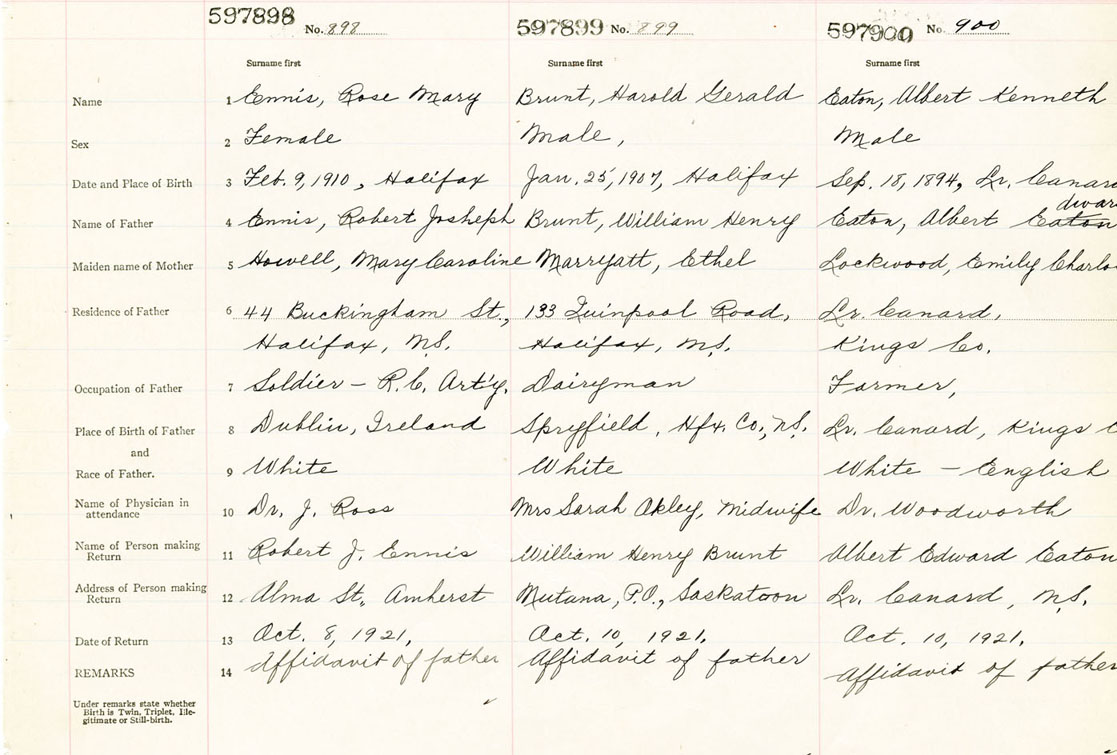 597898 No. 898 597899 No. 899 597900 No. 900
Surname first Surname first Surname first
Name 1 Ennis, Rose Mary Brunt, Harold Gerald Eaton, Albert Kenneth
Sex 2 Female Male, Male
Date and Place of Birth 3 Feb. 9, 1910, Halifax Jan. 25, 1907, Halifax Sep. 18, 1894, Lr. Canard
dwar
Name of Father 4 Ennis, Robert Josheph Brunt, William Henry Eaton, Albert Eaton
Maiden name of Mother 5 Howell, Mary Caroline Marryatt, Ethel Lockwood, Emily Charlo
Residence of Father 6 44 Buckingham St., 133 Quinpool Road, Lr. Canard,
Halifax, N.S. Halifax, N.S. Kings Co.
Occupation of Father 7 Soldier - R.C. Art'y. Dairyman Farmer,
Place of Birth of Father 8 Dublin, Ireland Spryfield, Hfx. Co., N.S. Lr. Canard, Kings C
and
Race of Father. 9 White White White - English
Name of Physician in
attendance 10 Dr. J. Ross Mrs Sarah Akley, Midwife Dr. Woodworth
Name of Person making
Return 11 Robert J. Ennis William Henry Brunt Albert Edward Eaton
Address of Person making
Return 12 Alma St. Amherst Nutana, P.O., Saskatoon Lr. Canard, N.S.
Date of Return 13 Oct. 8, 1921, Oct. 10, 1921. Oct. 10, 1921.
REMARKS 14 Affidavit of father Affidavit of father Affidavit of father
Under remarks state whether
Birth is Twin, Triplet, Ille-
gitimate or Still-birth.